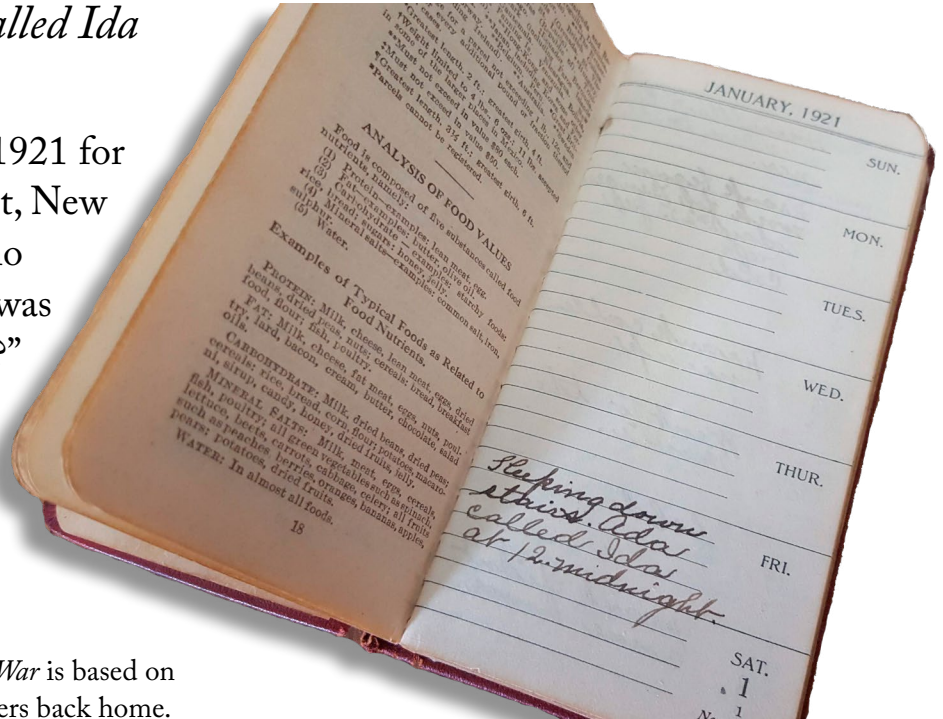 alled Ida
1921 for
t, New
was
War is based on
ers back home.
some of the larger places in Mexico.
‡Must not exceed in value $80 each.
¶Must not exceed in value $50.
*Parcels cannot be registered.
ANALYSIS OF FOOD VALUES
Food is composed of five substances called food
nutrients, namely:
(1) Protein—examples: lean meat, egg.
(2) Fat—examples: butter, olive oil.
(3) Carbohydrate—examples: starchy foods:
rice, bread; sugars: honey, jelly.
(4) Mineral salts—examples: common salt, iron,
sulphur.
(5) Water.
Examples of Typical Foods as Related to
Food Nutrients.
PROTEIN: Milk, cheese, lean meat, eggs, dried
beans, dried peas, nuts; cereals: bread, breakfast
food, flour; fish, poultry.
FAT: Milk, cheese, fat meat, eggs, nuts, poul-
try, lard, bacon, cream, butter, chocolate, salad
oils.
CARBOHYDRATE: Milk, dried beans, dried peas;
cereals: rice, bread, corn, flour; potatoes, macaro-
ni, sirup, candy, honey, dried fruits, jelly.
MINERAL SALTS: Milk, meat, eggs, cereals,
fish, poultry; all green vegetables such as spinach,
lettuce, beets, carrots, cabbage, celery; all fruits
such as peaches, berries, oranges, bananas, apples,
pears; potatoes, dried fruits.
WATER: In almost all foods.
18
JANUARY, 1921
SUN.
MON.
TUES.
WED.
THUR.
Sleeping down
stairs. Ada
called Ida
at 12. midnight.
FRI.
SAT.
1
1